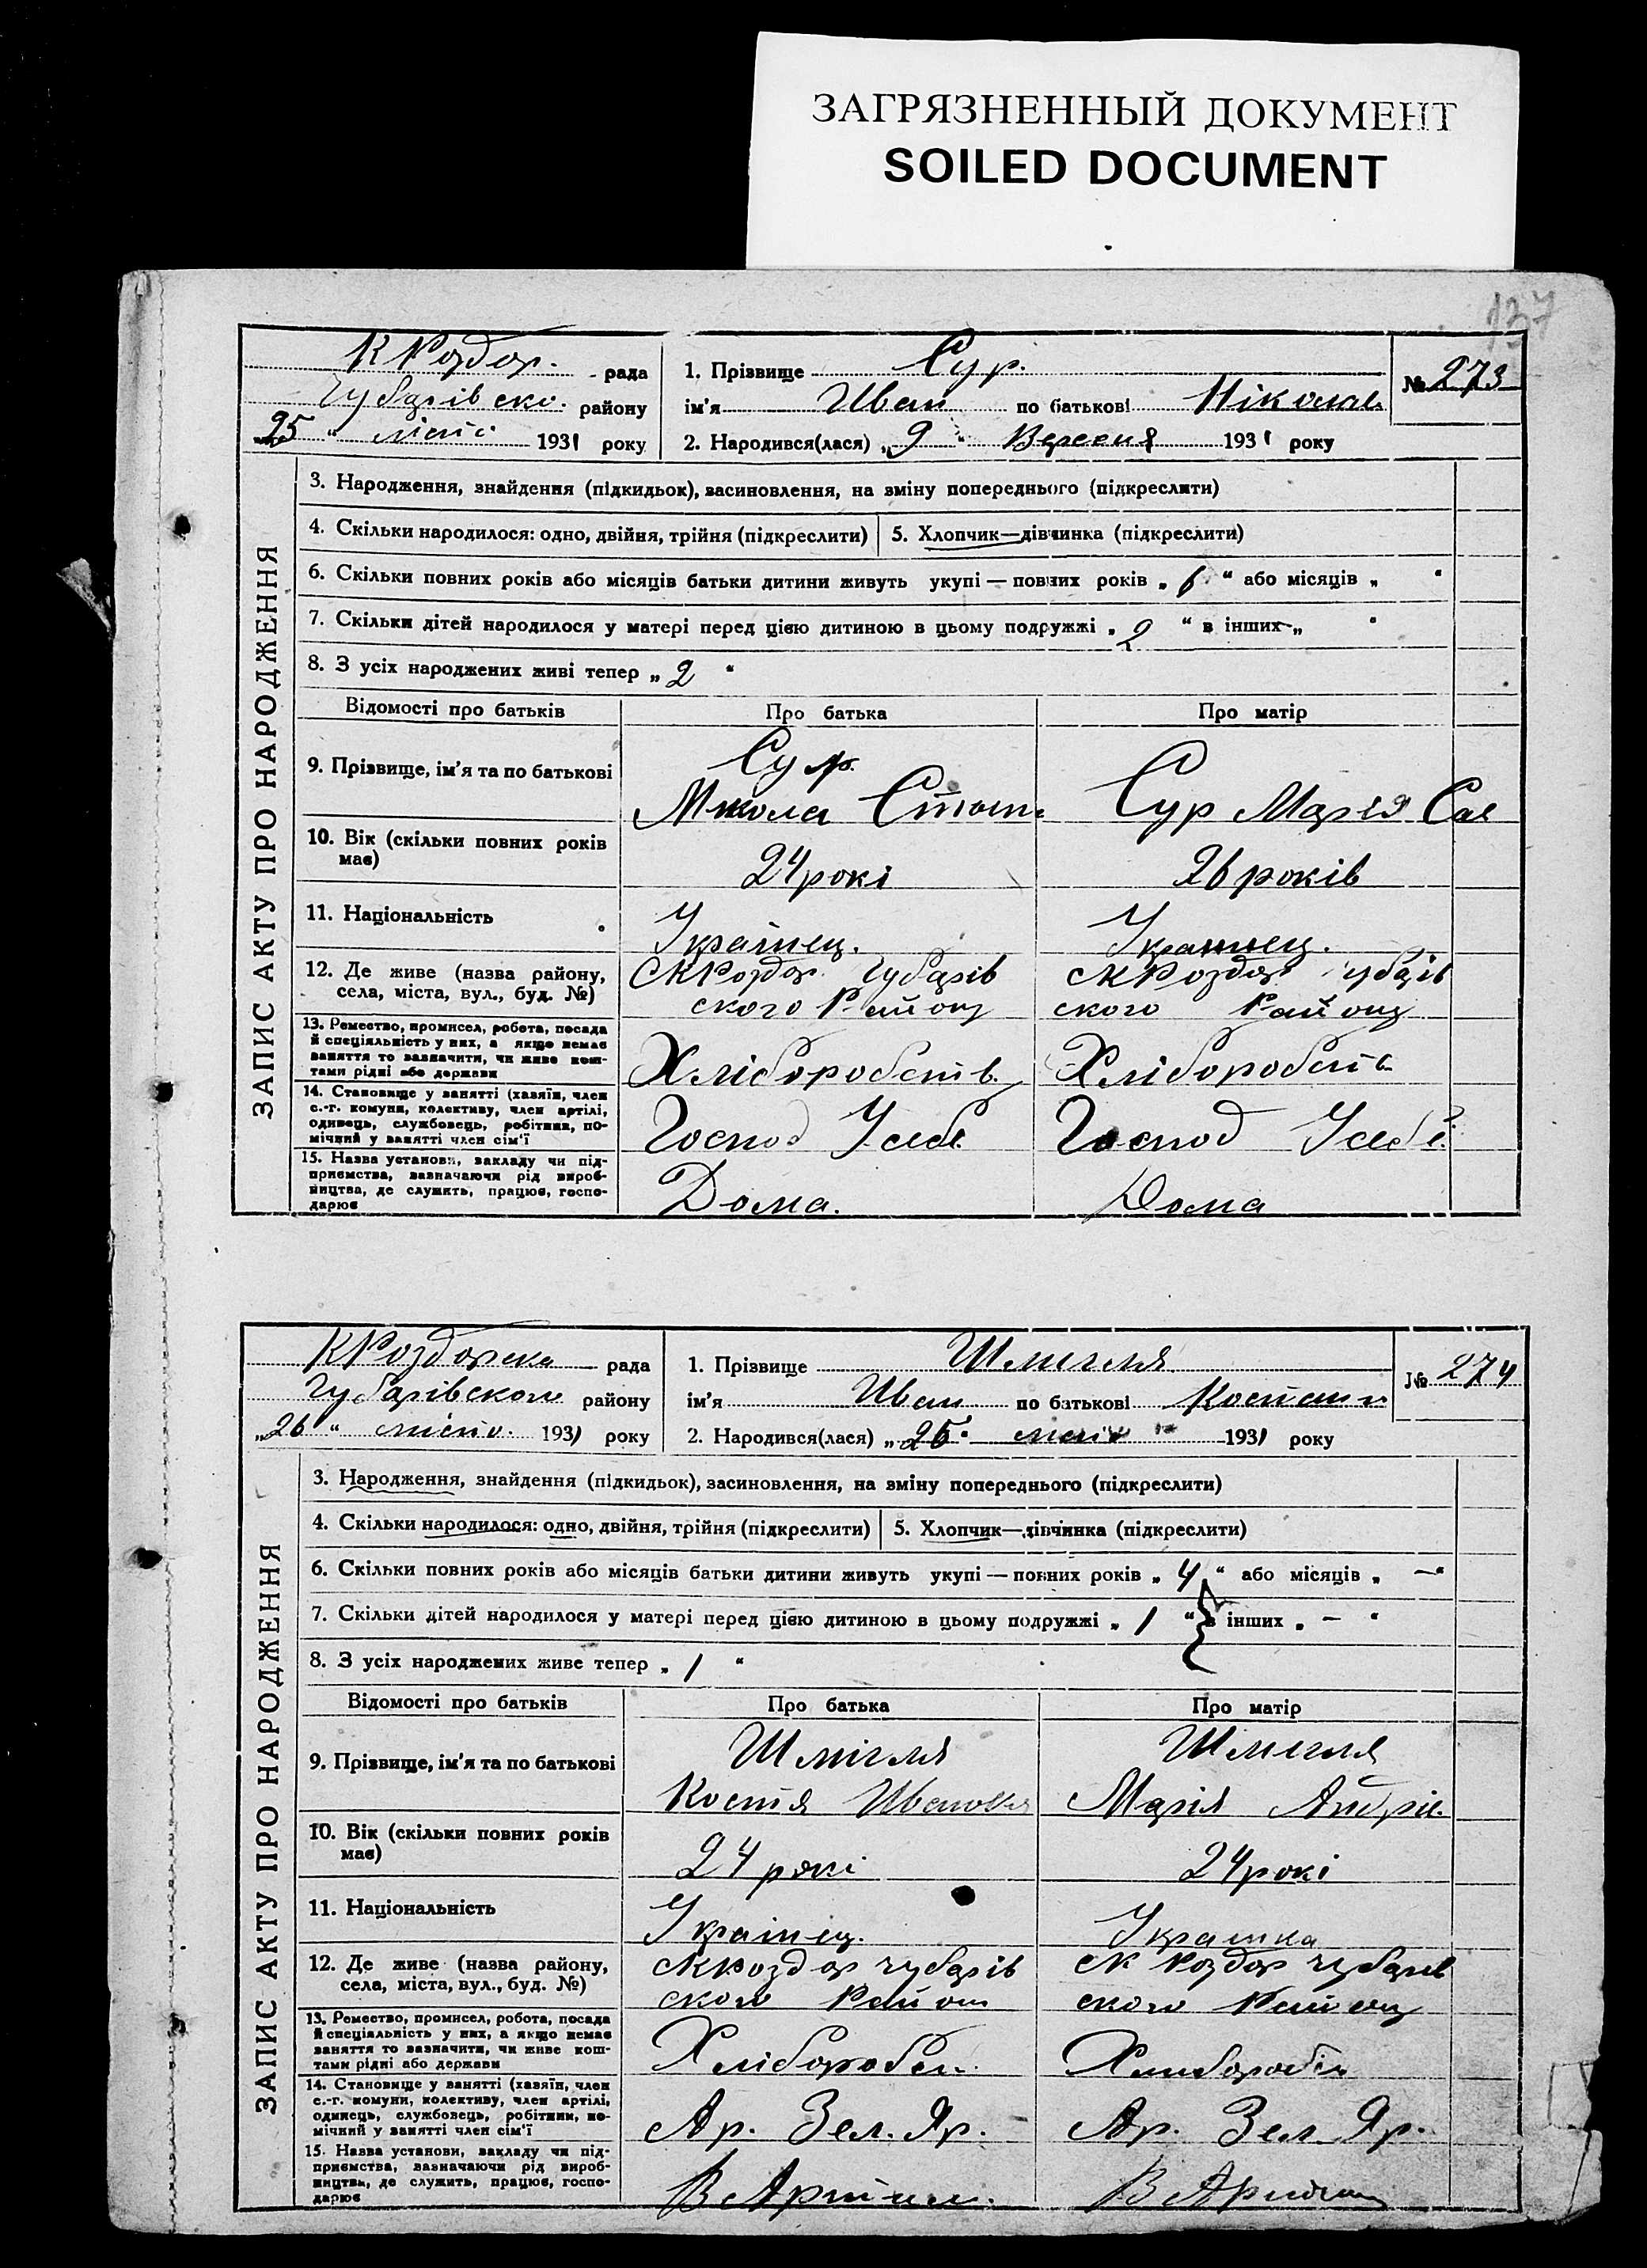 ЗАГРЯЗНЕННЫЙ ДОКУМЕНТ
SOILED DOCUMENT
137
К Роздор. рада
Чубарівско. району
25 " 1931 року
1. Прізвище Сур.
ім'я Иван по батькові Ніколае
2. Народився(лася) „ 9 " Вересня 1931 року
№ 273
ЗАПИС АКТУ ПРО НАРОДЖЕННЯ
3. Народження, знайдення (підкидьок), засиновлення, на зміну попереднього (підкреслити)
4. Скільки народилося: одно, двійня, трійня (підкреслити) 5. Хлопчик—дівчинка (підкреслити)
6. Скільки повних років або місяців батьки дитини живуть укупі — повних років „ 6 " або місяців „ "
7. Скільки дітей народилося у матері перед цією дитиною в цьому подружжі „ 2 " в інших „ "
8. З усіх народжених живі тепер „ 2 "
Відомості про батьків Про батька Про матір
9. Прізвище, ім'я та по батькові
Сур.
Микола
Сур Марія Сав
10. Вік (скільки повних років має)
24 рокі 26 років
11. Національність
Українец. Украинец.
12. Де живе (назва району, села, міста, вул., буд. №)
С К Роздор Чубарів
ского Району
с К Роздор Чубарів
ского Району
13. Ремество, промисел, робота, посада й спеціяльність у них, а якщо немає заняття то зазначити, чи живе коштами рідні або держави
Хліборобств. Хліборобств
14. Становище у занятті (хазяїн, член с.-г. комуни, колективу, член артілі, одинець, службовець, робітник, помічний у занятті член сім'ї
Господ У себе Господ У себе
15. Назва установи, закладу чи підприємства, зазначаючи рід виробництва, де служить, працює, господарює
Дома. Дома
К Роздорска рада
Чубарівского району
„ 26 " 1931 року
1. Прізвище Шмигля
ім'я Иван по батькові Костянт
2. Народився(лася) „ 25 " 1931 року
№ 274
ЗАПИС АКТУ ПРО НАРОДЖЕННЯ
3. Народження, знайдення (підкидьок), засиновлення, на зміну попереднього (підкреслити)
4. Скільки народилося: одно, двійня, трійня (підкреслити) 5. Хлопчик—дівчинка (підкреслити)
6. Скільки повних років або місяців батьки дитини живуть укупі — повних років „ 4 " або місяців „ — "
7. Скільки дітей народилося у матері перед цією дитиною в цьому подружжі „ 1 " в інших „ — "
8. З усіх народжених живе тепер „ 1 "
Відомості про батьків Про батька Про матір
9. Прізвище, ім'я та по батькові
Шмігля
Костя Иванович
Шмигля
Марія Андріє.
10. Вік (скільки повних років має)
24 рокі 24 рокі
11. Національність
Українец. Украинка
12. Де живе (назва району, села, міста, вул., буд. №)
с К Роздор Чубарів
ского Району
с К Роздор Чубарів
ского Району
13. Ремество, промисел, робота, посада й спеціяльність у них, а якщо немає заняття то зазначити, чи живе коштами рідні або держави
Хлібороб
14. Становище у занятті (хазяїн, член с.-г. комуни, колективу, член артілі, одинець, службовець, робітник, помічний у занятті член сім'ї
Ар. Зел. Яр. Ар. Зел. Яр.
15. Назва установи, закладу чи підприємства, зазначаючи рід виробництва, де служить, працює, господарює
В Артили.